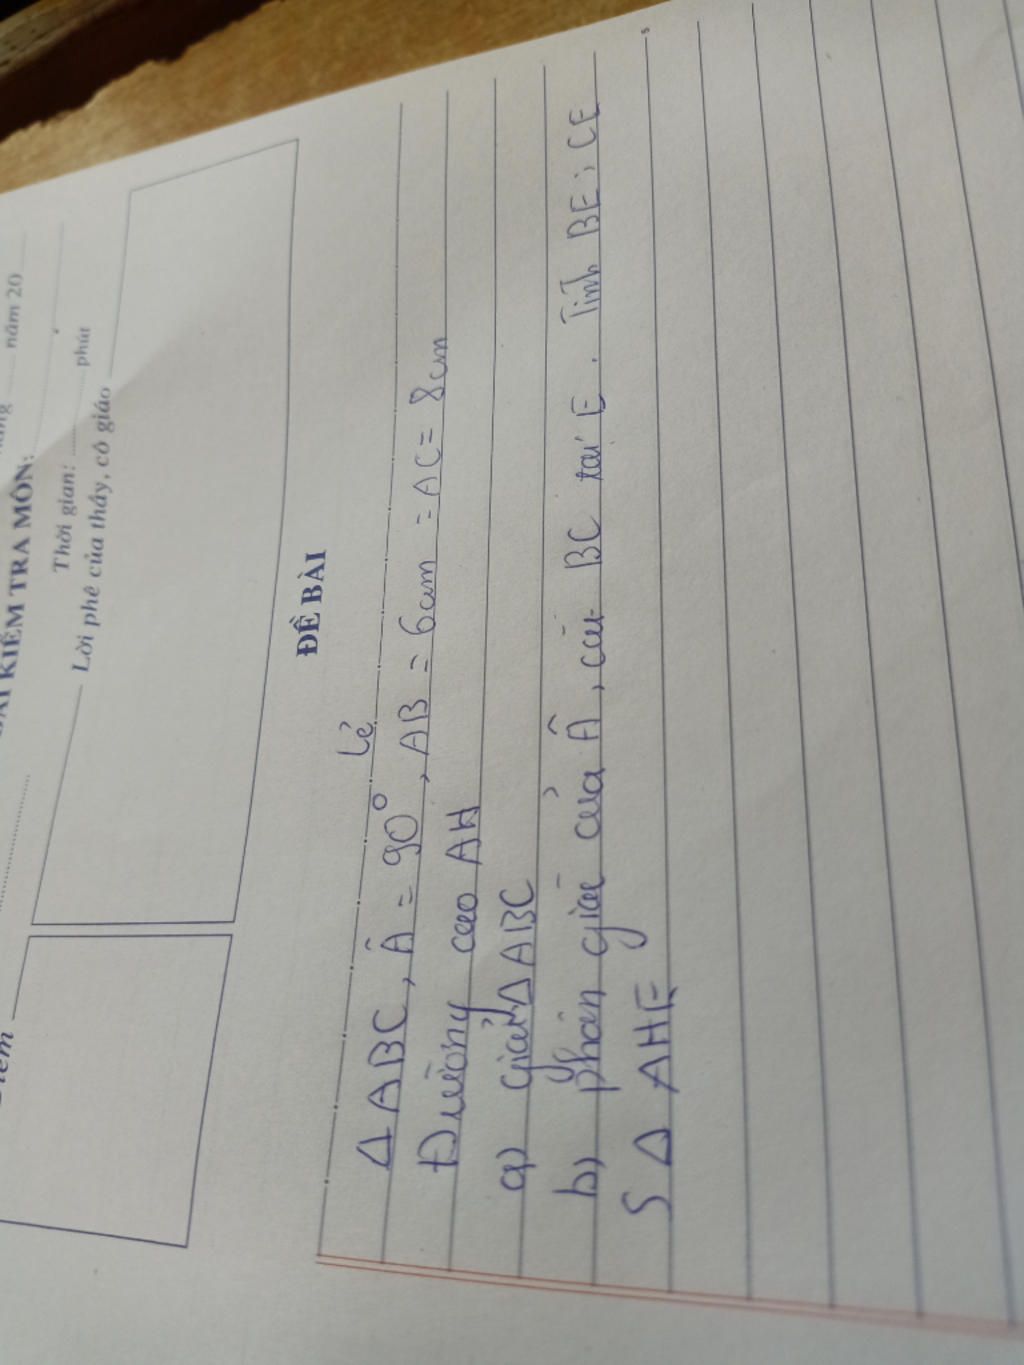 năm 20
BÀI KIỂM TRA MÔN:
Thời gian: phút
Điểm
Lời phê của thầy, cô giáo
ĐỀ BÀI
Lẻ
Δ ABC, Â = 90°, AB = 6cm = AC = 8cm
Đường cao AH
a) giải Δ ABC
b) phân giác của Â, cắt BC tại E. Tính BE; CE
S Δ AHE